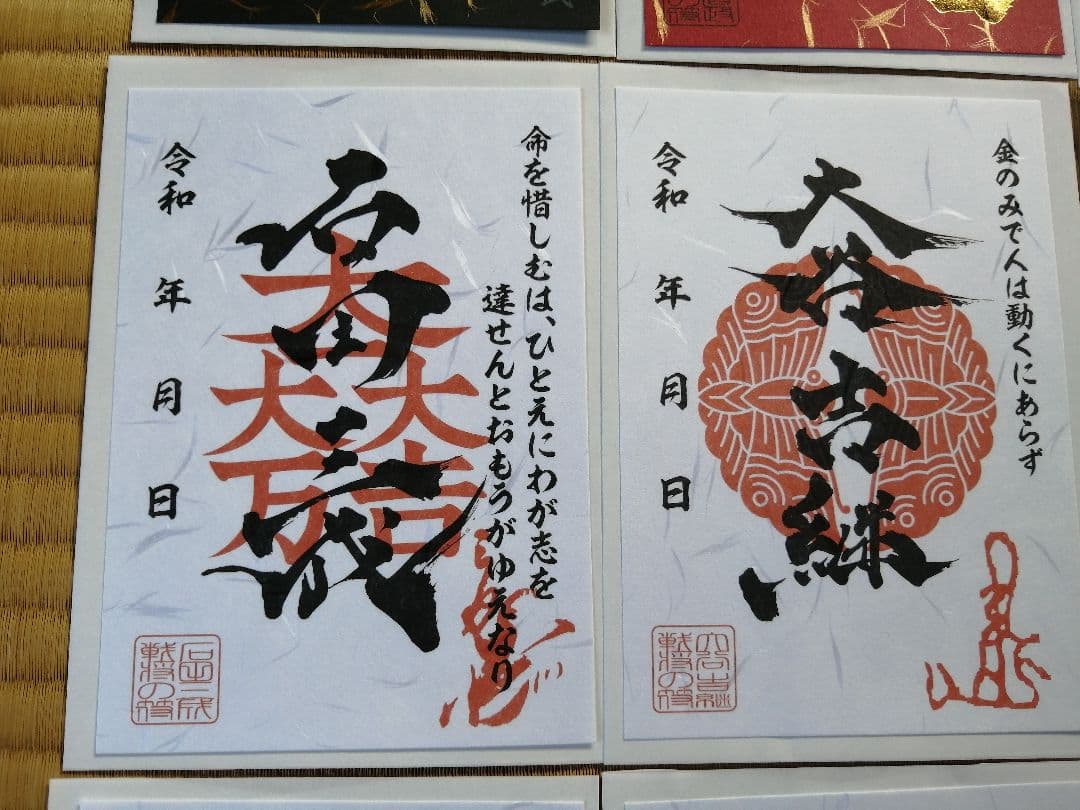 命を惜しむは、ひとえにわが志を
達せんとおもうがゆえなり
石田三成
大
大大
万吉
令和 年 月 日
石田三成
戦将の符
金のみで人は動くにあらず
大谷吉継
令和 年 月 日
大谷吉継
戦将の符